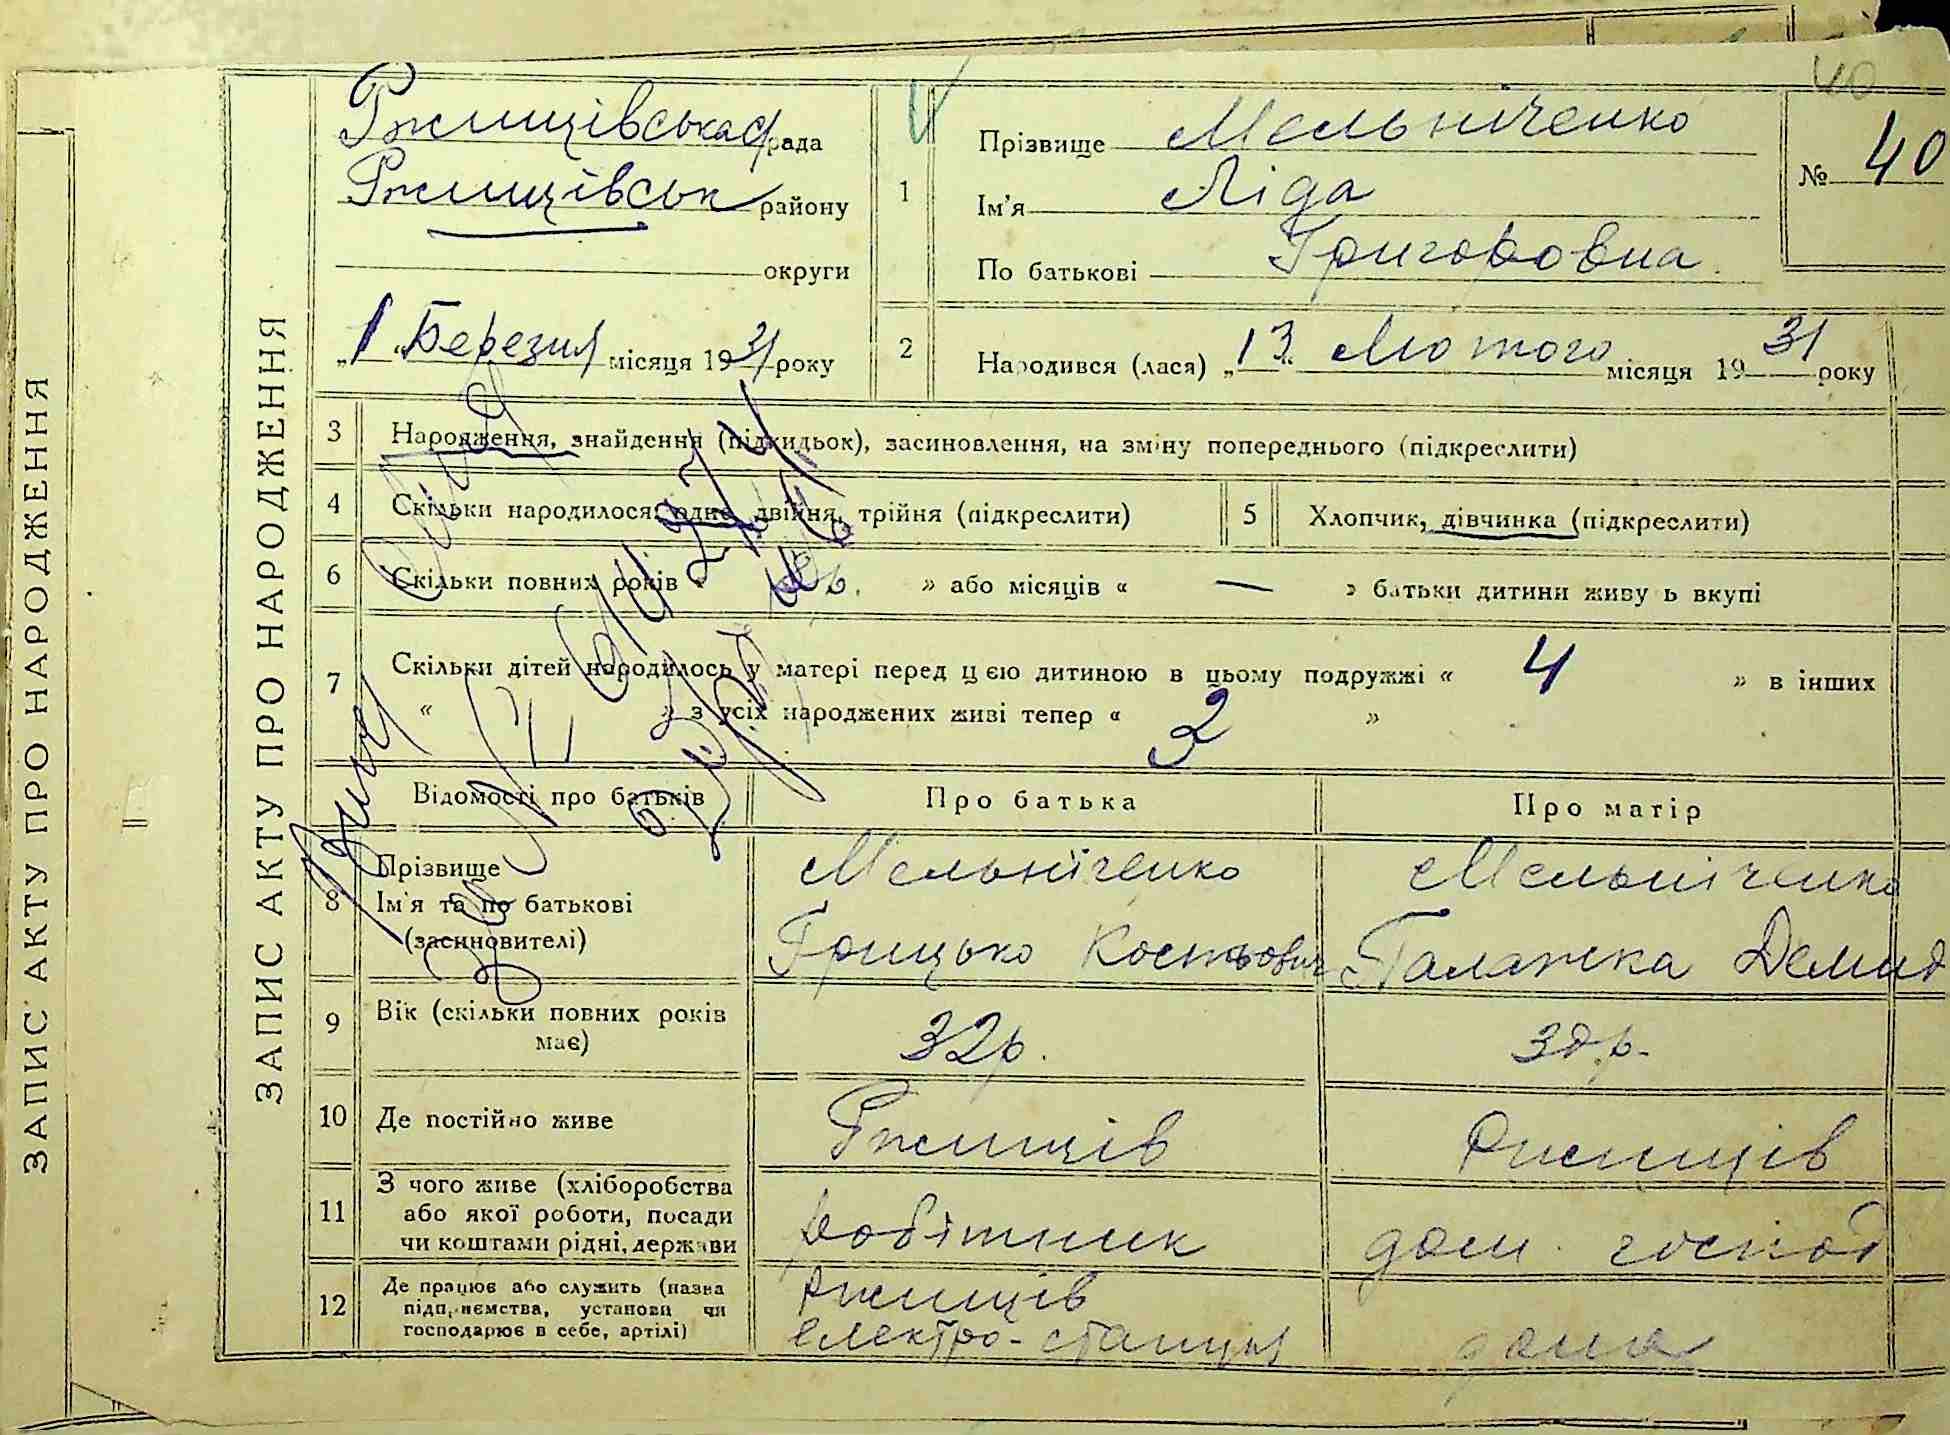 40
Ржищівська с/рада
Ржищівськ району
округи
„1“ Березня місяця 1931 року
1
Прізвище Мельніченко
Ім'я Ліда
По батькові Григоровна
№ 40
2
Народився (лася) „13“ Лютого місяця 1931 року
3 Народження, знайдення (підкидьок), засиновлення, на зміну попереднього (підкреслити)
4 Скільки народилося: одно, двійня, трійня (підкреслити)
5 Хлопчик, дівчинка (підкреслити)
6 Скільки повних років « » або місяців « — » батьки дитини живуть вкупі
7 Скільки дітей народилось у матері перед цією дитиною в цьому подружжі « 4 » в інших
« » з усіх народжених живі тепер « 3 »
Відомості про батьків Про батька Про матір
8 Прізвище
Ім'я та по батькові
(засиновителі)
Мельніченко
Грицько Костьович
Мельніченко
Галажка Демид
9 Вік (скільки повних років
має)
32 р.
р.
10 Де постійно живе Ржищів Ржищів
11 З чого живе (хліборобства
або якої роботи, посади
чи коштами рідні, держави
робітник
дом. господ
12 Де працює або служить (назва
підприємства, установи чи
господарює в себе, артілі)
Ржищів
електро-станція
дома
ЗАПИС АКТУ ПРО НАРОДЖЕННЯ
ЗАПИС АКТУ ПРО НАРОДЖЕННЯ